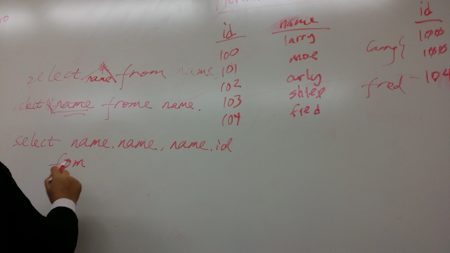 id name id
100 larry 100
select name from name 101 moe 100
102 curly fred - 104
select name frome name. 103 shlep
104 fred
select name.name, name.id
from